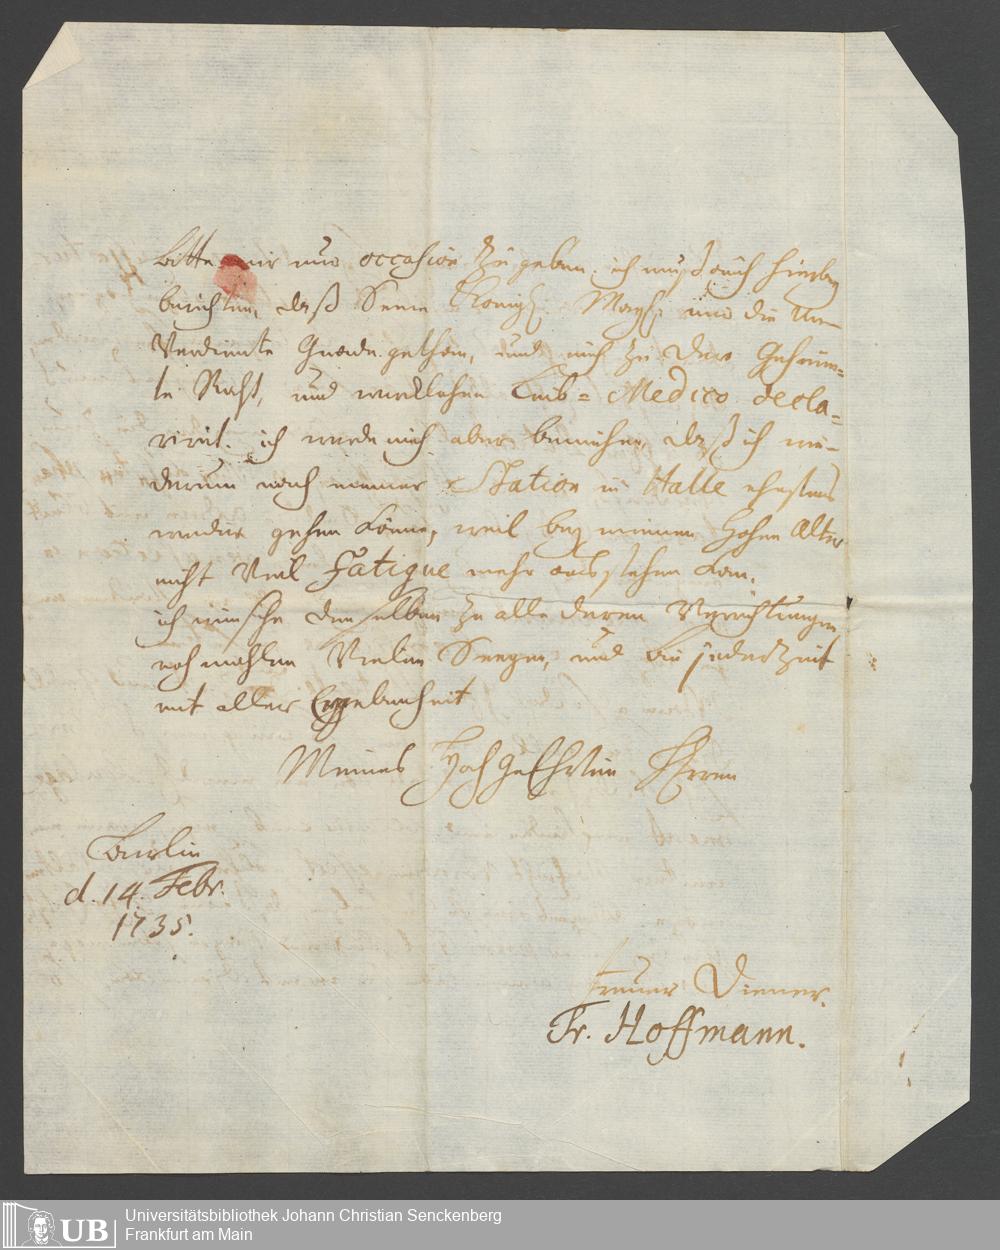 bitte mir nur occasion zu geben. ich muß auch hierbey
berichten, daß Seine Königl. Mayst. mir die Un-
Verdiente Gnade gethan, und mich zu Dero Geheim-
te Raht, und würcklichen Leib-Medico decla-
rirt. ich werde mich aber bemühen, daß ich wie-
derum nach meiner Station in Halle ehestens
wieder gehen könne, weil bey meinem hohen Alter
nicht Viel Fatigue mehr ausstehen kan.
ich wünsche denselben zu alle deren Verrichtungen
nochmahlen Vielen Seegen, und bin jederzeit
mit aller Ergebenheit
Meines HochgeEhrten Herren
Berlin
d. 14. Febr.
1735.
treuer Diener.
Fr. Hoffmann.
UB
Universitätsbibliothek Johann Christian Senckenberg
Frankfurt am Main